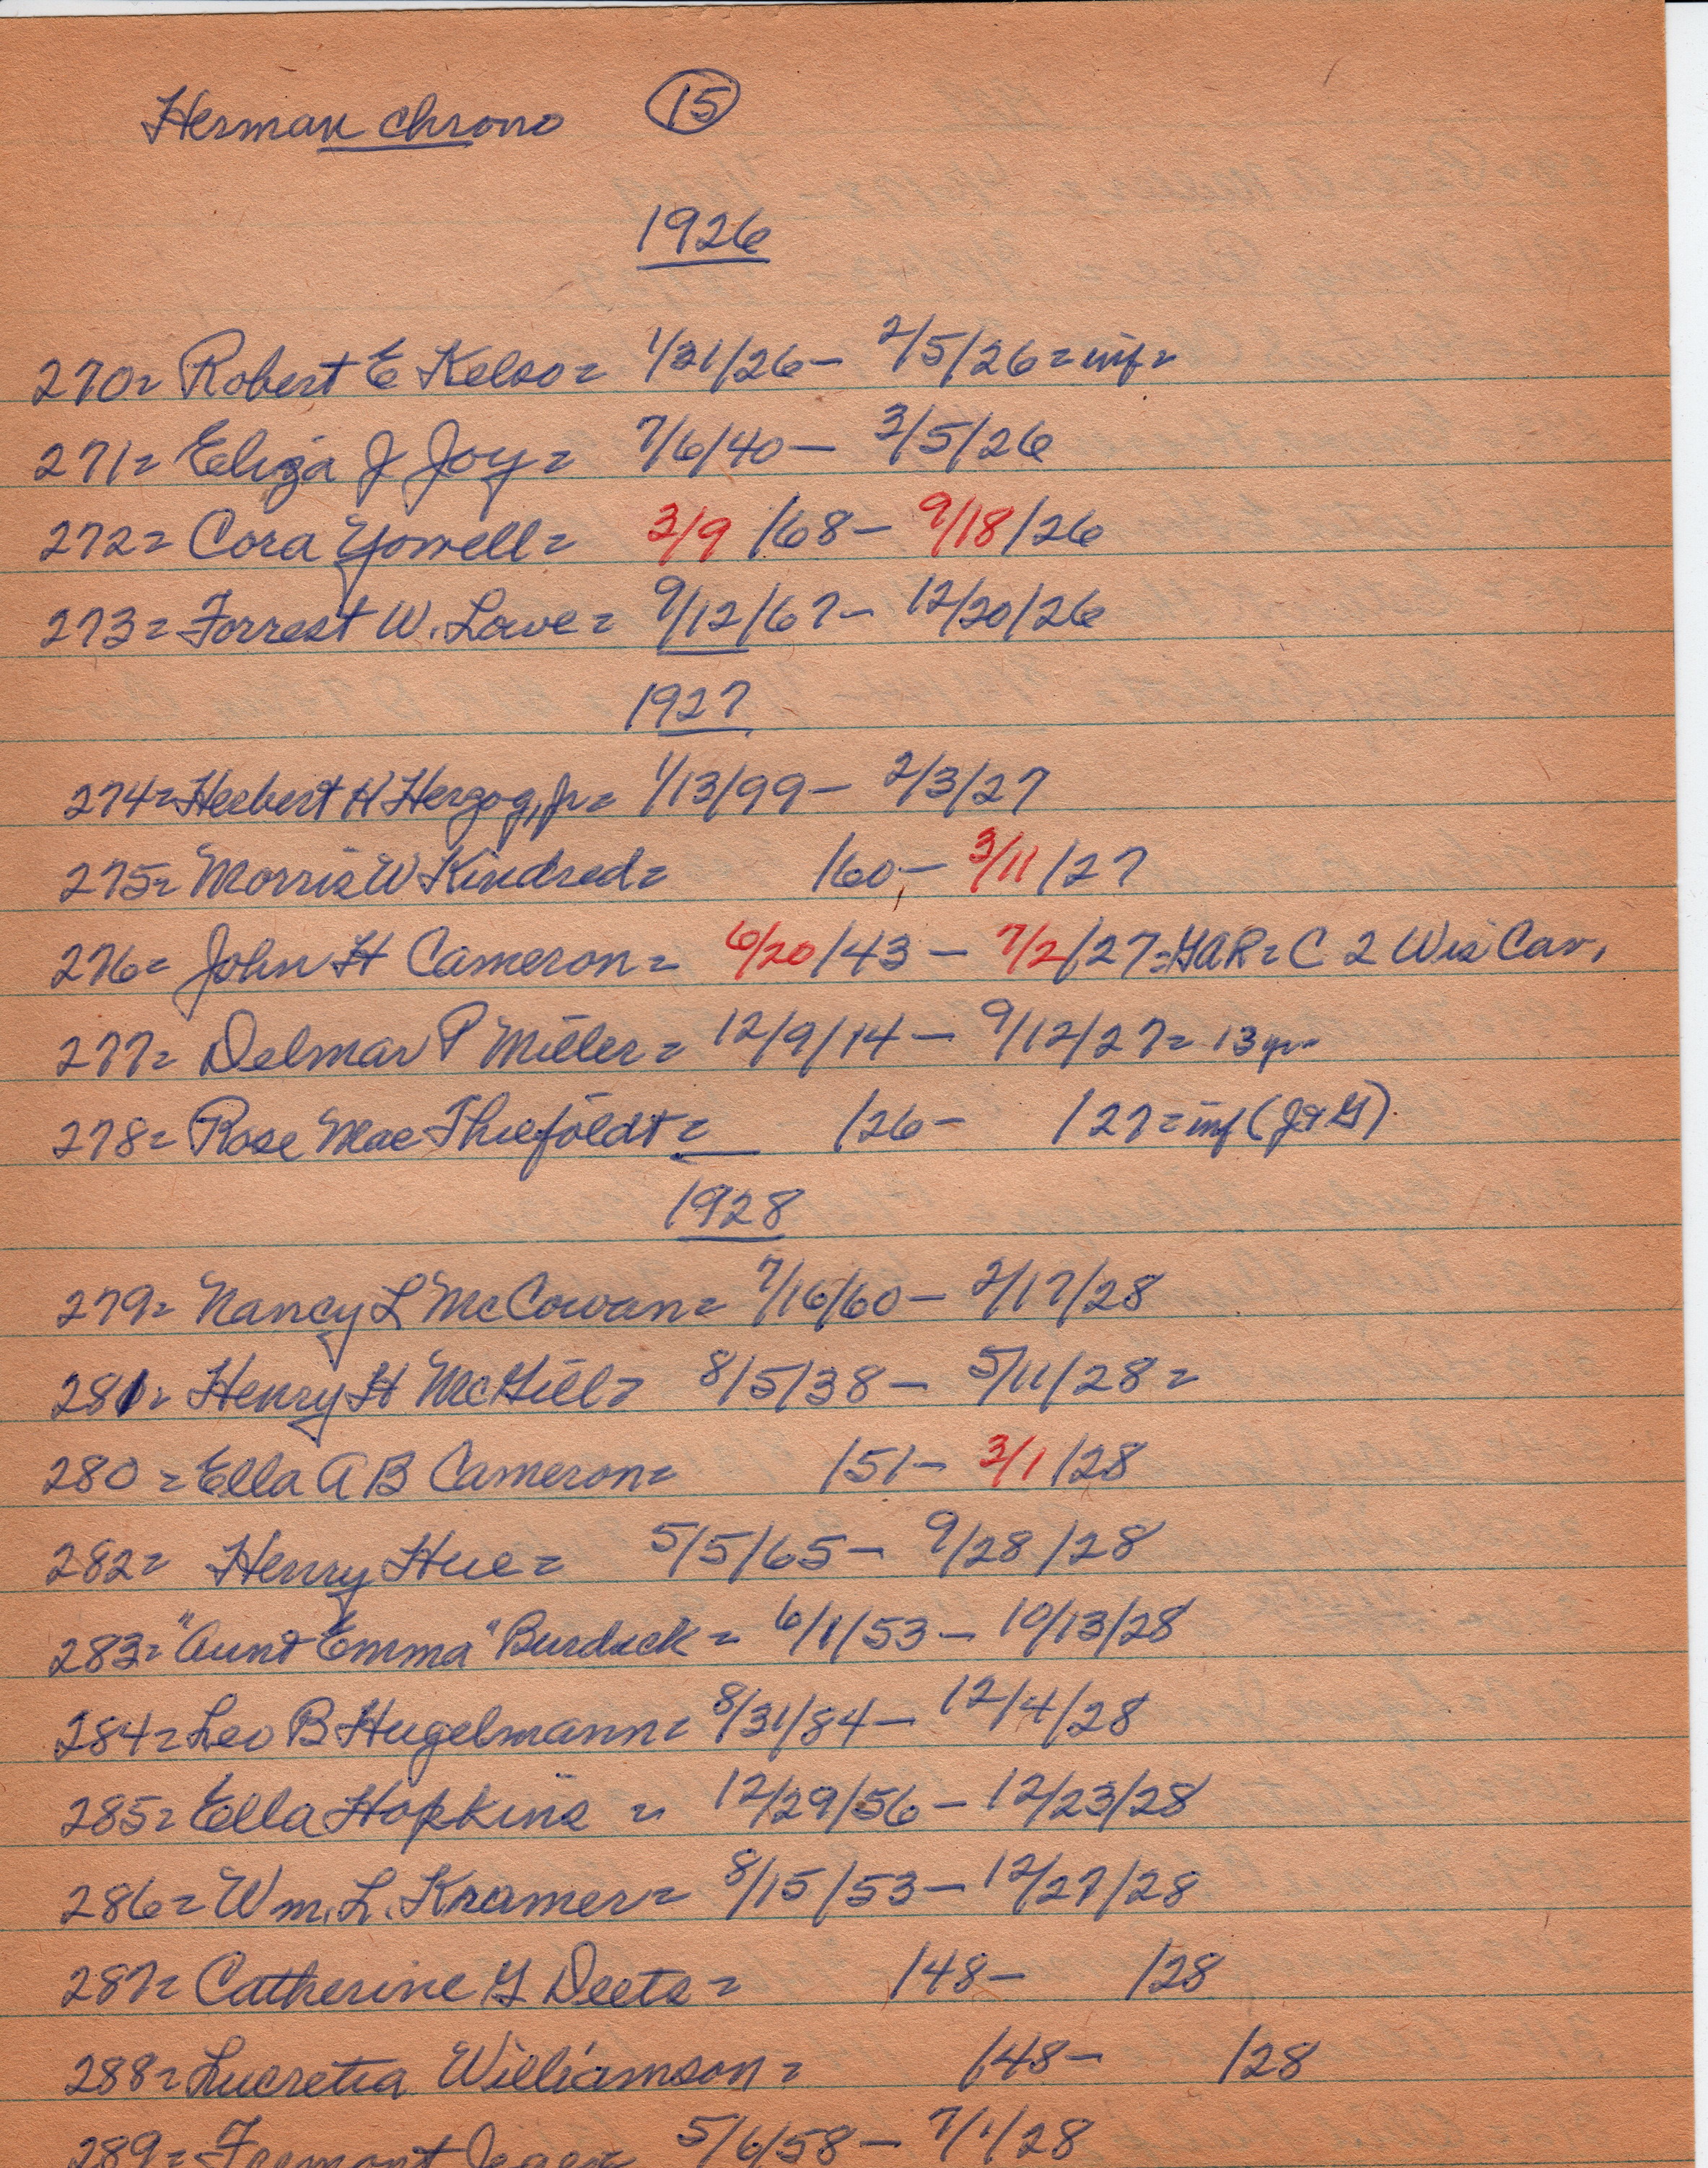 Herman chrono 15
1926
270= Robert E Kelso= 1/21/26- 2/5/26= inf=
271= Eliza J Joy= 7/6/40- 3/5/26
272= Cora Yowell= 3/9/68- 9/18/26
273= Forrest W. Lowe= 9/12/67- 12/20/26
1927
274= Herbert H Herzog, Jr= 1/13/99- 2/3/27
275= Morris W Kindred= /60- 3/11/27
276= John H Cameron= 6/20/43- 7/2/27=GAR= C 2 Wis Cav.
277= Delmar P Miller= 12/9/14- 9/12/27= 13 yr
278= Rose Mae Thiefoldt= /26- /27= inf (J+G)
1928
279= Nancy L McCowan= 7/16/60- 2/17/28
281= Henry H McGill= 8/5/38- 5/11/28=
280= Ella A B Cameron= /51- 3/1/28
282= Henry Hue= 5/5/65- 9/28/28
283= "Aunt Emma" Burdick= 6/1/53- 10/13/28
284= Leo B Hugelmann= 8/31/84- 12/4/28
285= Ella Hopkins= 12/29/56- 12/23/28
286= Wm. L. Kramer= 8/15/53- 12/27/28
287= Catherine G Deets= /48- /28
288= Lucretia Williamson= /48- /28
289= Fremont 5/6/58- 7/1/28